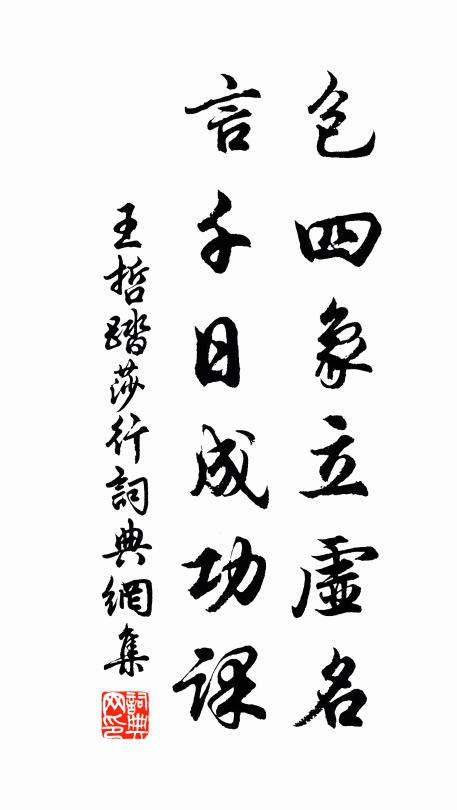 包四象立虛名
言千日成功課
王哲踏莎行詞典網集
詞典網印